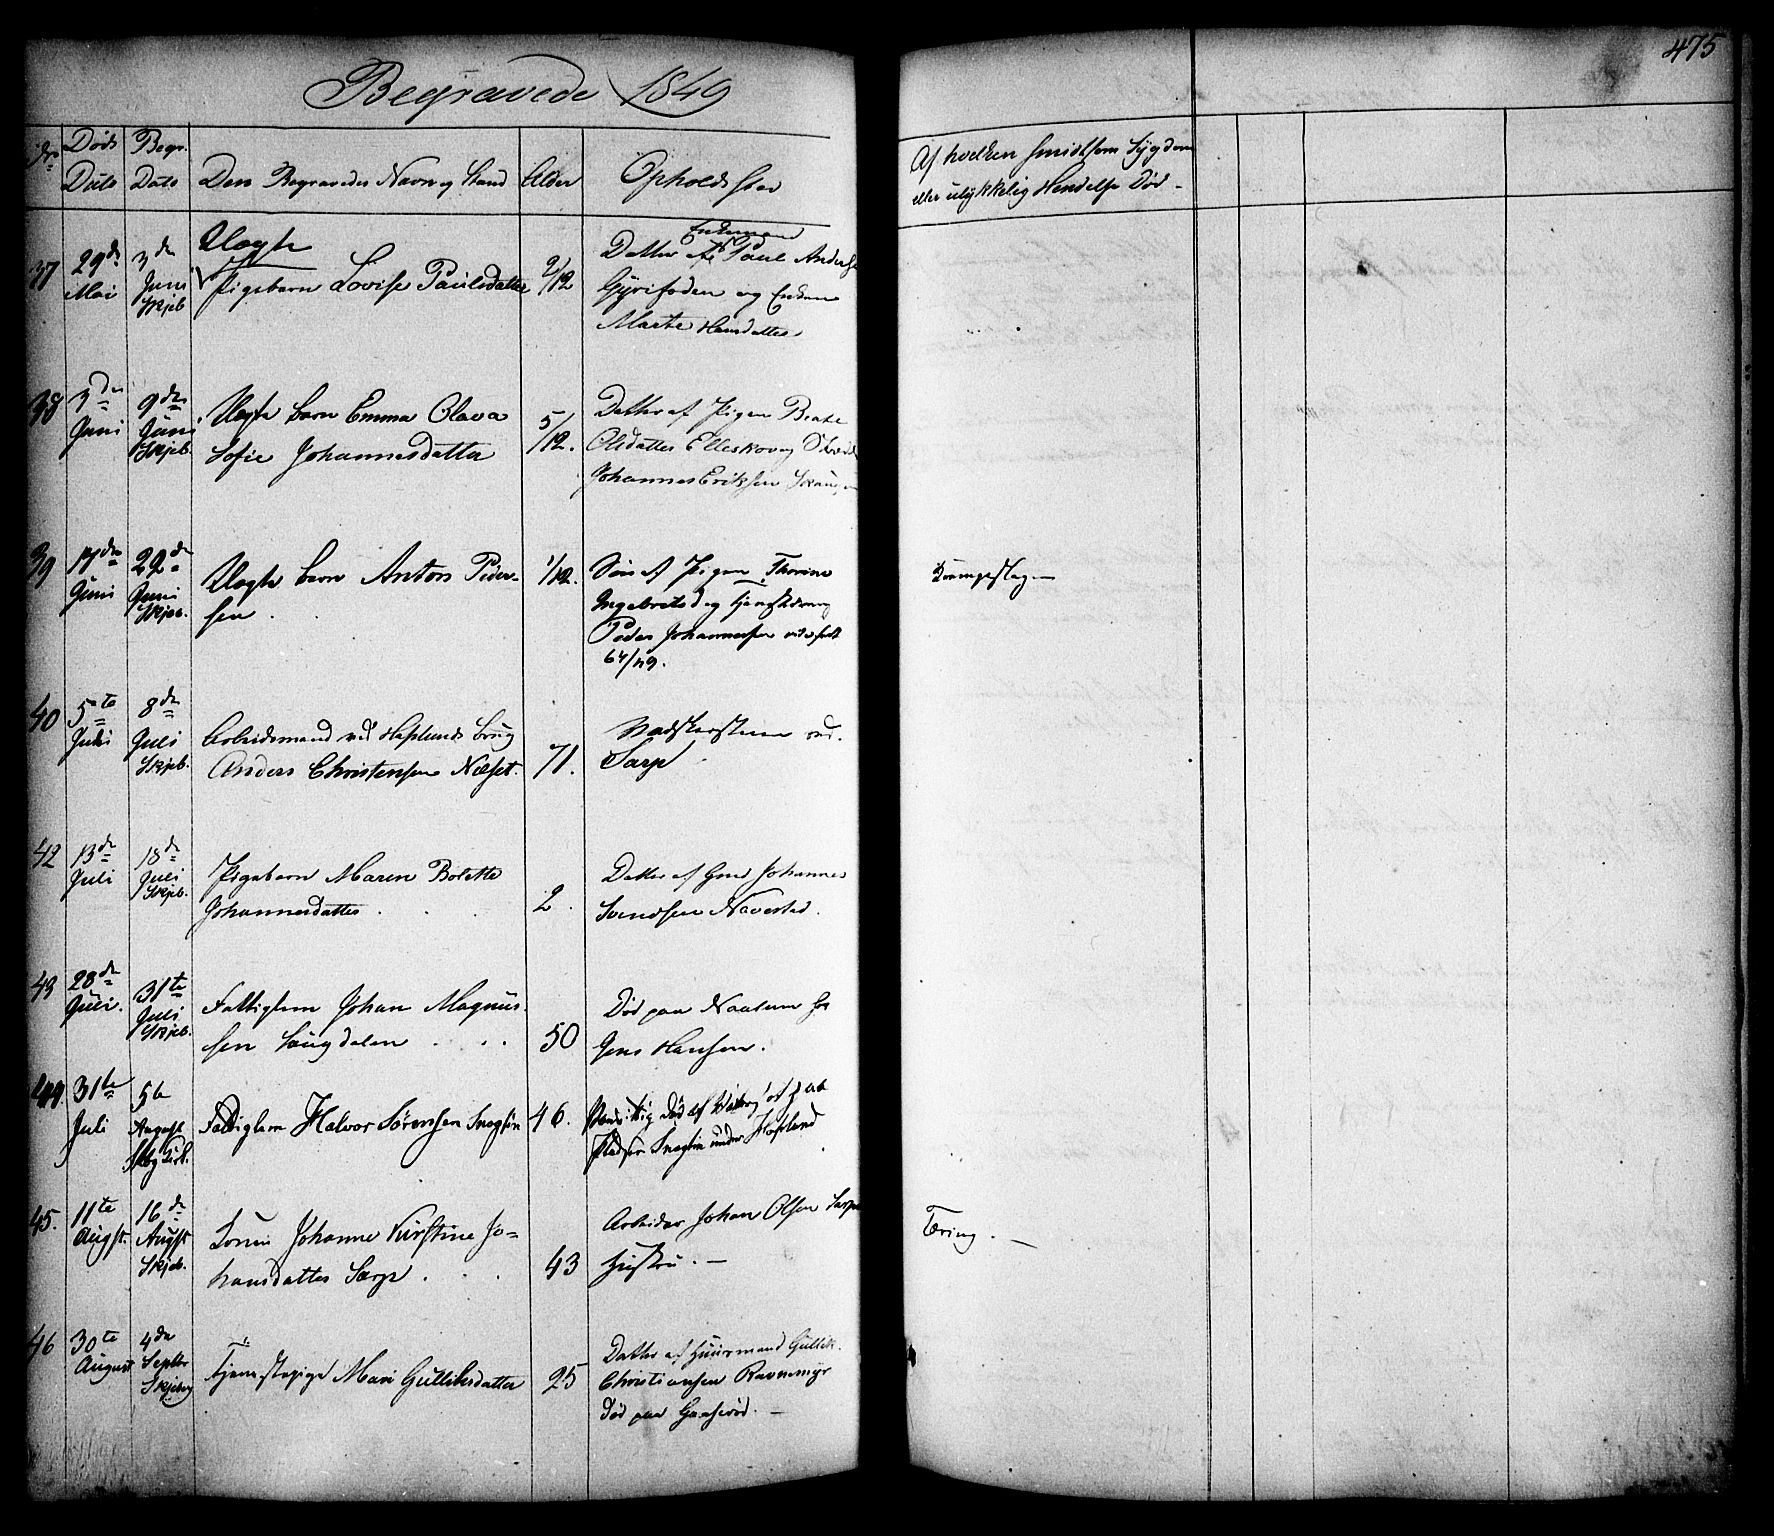 475
Begravede 1849
Nr Døds Dato Begr. Dato Den Begravedes Navn og Stand Alder Opholdssted
Af hvilken smidtsom Sygdom
eller ulykkelig Hendelse Død -
37 29de Mai 3de Juni Skjeb
Uægte
Pigebarn Lovise Paulsdatter 2/12
Enkemand
Datter af Paul Anders
og Enken
Marte Hansdatter
38 3die Juni 9de Juni Skjeb.
Uægte barn Emma Olava
Sofie Johannesdatter
5/12.
Datter af Pigen Beate
Olsdatter Elleskov og
Johannes Eriksen
39 17de Juni 22de Juni Skjeb.
Uægte barn Anton Peder-
sen.
1/12.
Søn af Pigen Thorine
Ingebretsd og
Peder Johannessen
64/49.
Krampeslag
40 5te Juli 8de Juli Skjeb.
Arbeidsmand ved Hafslunds brug
Anders Christensen Næset.
71.
Sarp
42 13de Juli 18de Juli Skjeb.
Pigebarn Maren Bolette
Johannesdatter.
2.
Datter af Gmd Johannes
Svendsen Navestad.
43 28de Juli. 31te Juli Skjeb.
Fattiglem Johan Magnus-
sen Haugdalen
50
Død paa Naalum hos
Jens Hansen.
44 31te Juli 5te August
Fattiglem Halvor Sørensen
46.
Død af
under Hafslund
45. 11te August. 16de August Skjeb.
Konen Johanne Kirstine Jo-
hansdatter Sarp.
43
Arbeider Johan Olsen Sarps
Hustru. -
Tæring. -
46 30te August 4de Septbr Skjeberg
Tjenestepige Mari Gulliksdatter
25
Datter af Huusmand Gullik
Christiansen Ravnemyr
Død paa -